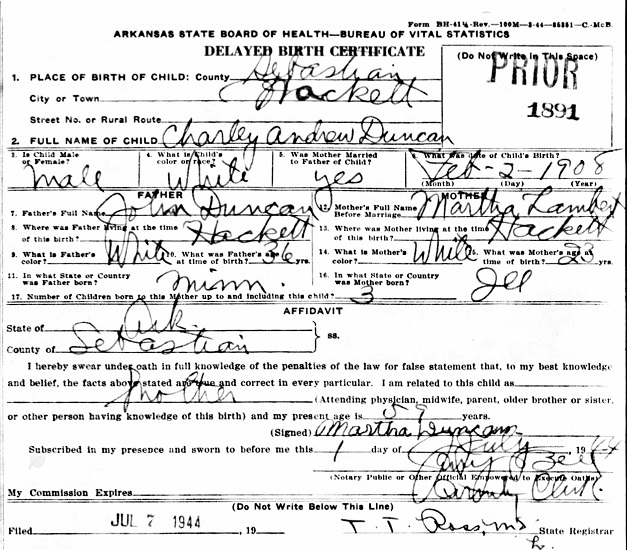 Form BH-41¼-Rev.—100M—3-44—86351—C.-McB.
ARKANSAS STATE BOARD OF HEALTH—BUREAU OF VITAL STATISTICS
DELAYED BIRTH CERTIFICATE
(Do Not Write in This Space)
PRIOR
1891
1. PLACE OF BIRTH OF CHILD: County Sebastian
City or Town Hackett
Street No. or Rural Route
2. FULL NAME OF CHILD Charley Andrew Duncan
3. Is Child Male or Female? Male 4. What is Child's color or race? White 5. Was Mother Married to Father of Child? yes 6. What was date of Child's Birth? Feb-2-1908
(Month) (Day) (Year)
FATHER MOTHER
7. Father's Full Name John Duncan 12. Mother's Full Name Before Marriage Martha Lambert
8. Where was Father living at the time of this birth? Hackett 13. Where was Mother living at the time of this birth? Hackett
9. What is Father's color? White 10. What was Father's age at time of birth? 36 yrs. 14. What is Mother's color? White 15. What was Mother's age at time of birth? 23 yrs.
11. In what State or Country was Father born? Minn. 16. In what State or Country was Mother born? Ill
17. Number of Children born to this Mother up to and including this child? 3
AFFIDAVIT
State of Ark.
County of Sebastian } ss.
I hereby swear under oath in full knowledge of the penalties of the law for false statement that, to my best knowledge
and belief, the facts above stated are true and correct in every particular. I am related to this child as
Mother (Attending physician, midwife, parent, older brother or sister,
or other person having knowledge of this birth) and my present age is 59 years.
(Signed) Martha Duncan
Subscribed in my presence and sworn to before me this 1 day of July, 1944
(Notary Public or Other Official Empowered to Execute Oaths)
My Commission Expires County Clerk.
(Do Not Write Below This Line)
Filed JUL 7 1944, 19 T. T. Ross, M.D. State Registrar